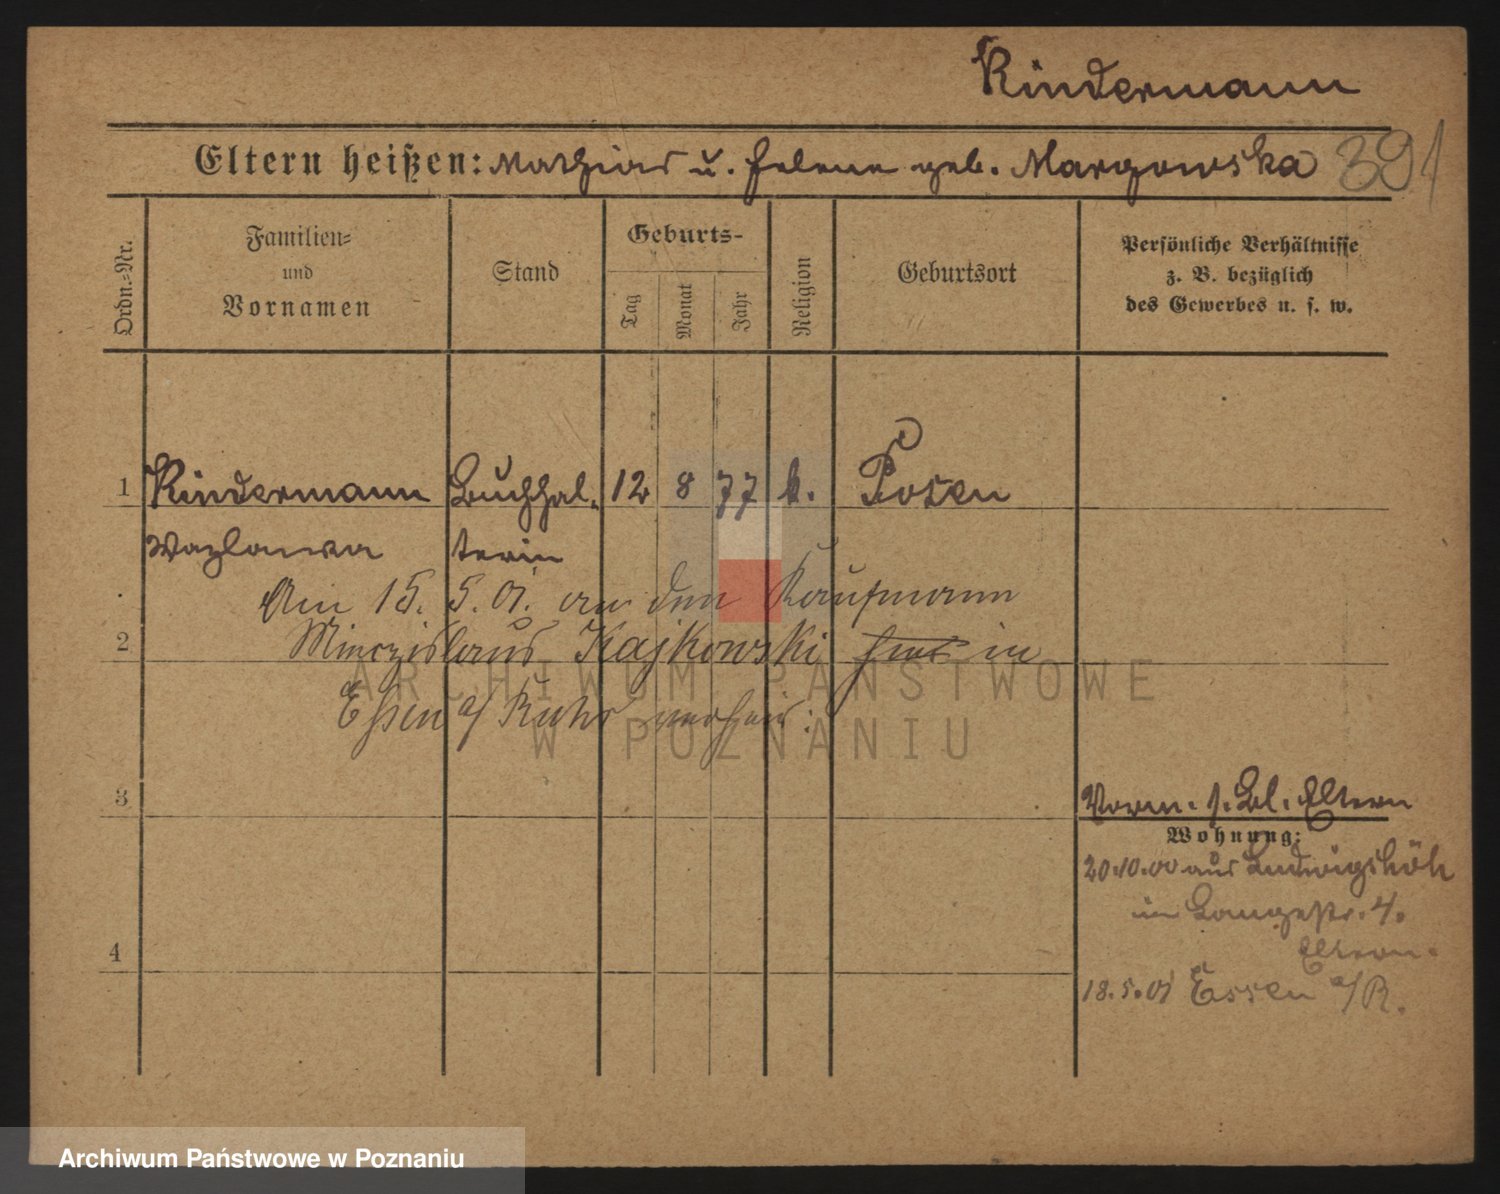 Kindermann
Eltern heißen: Mathias u. Helene geb. Margowska 391
Ordn.-Nr.
Familien-
und
Vornamen
Stand
Geburts-
Tag
Monat
Jahr
Religion
Geburtsort
Persönliche Verhältnisse
z. B. bezüglich
des Gewerbes u. s. w.
1 Kindermann Buchhal- 12 8 77 k. Posen
Wazlawa terin
Am 15. 5. 01. an den Kaufmann
2 Mieczislaus Kajkowski in
Essen a/ Ruhr verheir:
3
Vorm. s. Bl. Eltern
Wohnung:
20.10.00 aus Ludwigshöh
in Langestr. 4.
4
Eltern.
18.5.01 Essen a/R.
ARCHIWUM PAŃSTWOWE
W POZNANIU
Archiwum Państwowe w Poznaniu